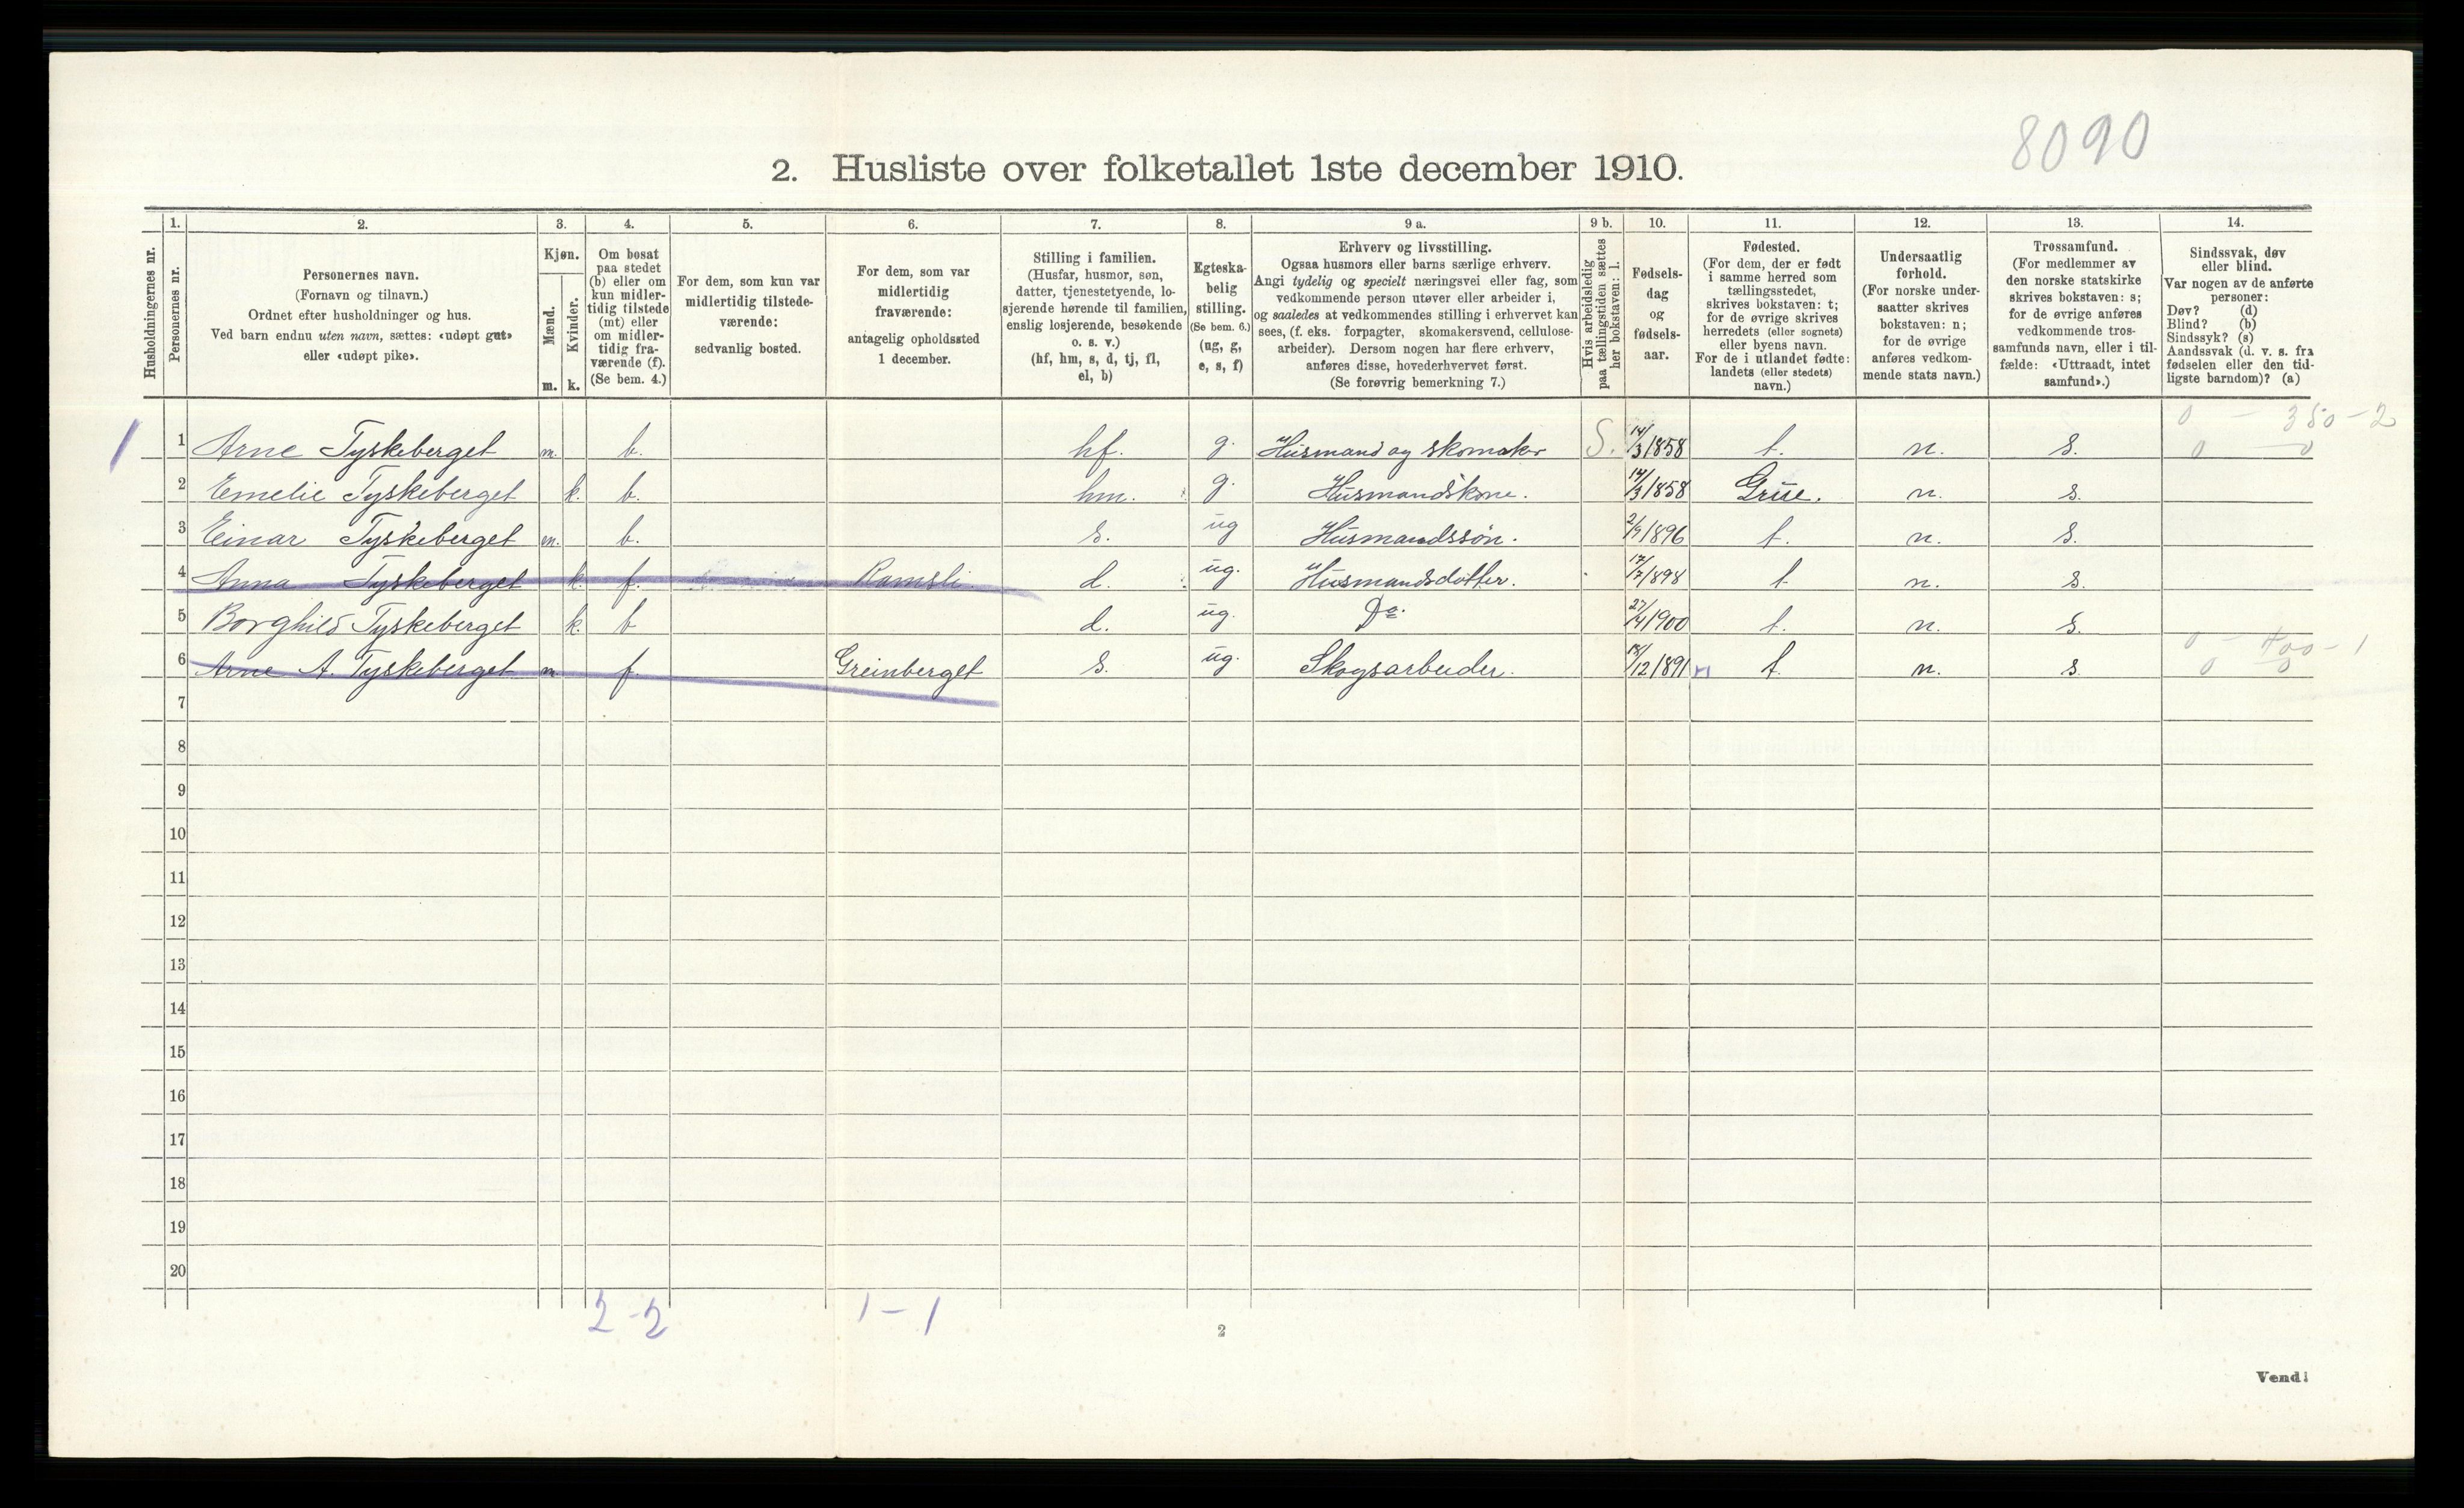 8090
2. Husliste over folketallet 1ste december 1910.
Husholdningernes nr.
1.
Personernes nr.
2.
Personernes navn.
(Fornavn og tilnavn.)
Ordnet efter husholdninger og hus.
Ved barn endnu uten navn, sættes: «udøpt gut»
eller «udøpt pike».
3.
Kjøn.
Mænd.
Kvinder.
m. k.
4.
Om bosat
paa stedet
(b) eller om
kun midler-
tidig tilstede
(mt) eller
om midler-
tidig fra-
værende (f).
(Se bem. 4.)
5.
For dem, som kun var
midlertidig tilstede-
værende:
sedvanlig bosted.
6.
For dem, som var
midlertidig
fraværende:
antagelig opholdssted
1 december.
7.
Stilling i familien.
(Husfar, husmor, søn,
datter, tjenestetyende, lo-
sjerende hørende til familien,
enslig losjerende, besøkende
o. s. v.)
(hf, hm, s, d, tj, fl,
el, b)
8.
Egteska-
belig
stilling.
(Se bem. 6.)
(ug, g,
e, s, f)
9 a.
Erhverv og livsstilling.
Ogsaa husmors eller barns særlige erhverv.
Angi tydelig og specielt næringsvei eller fag, som
vedkommende person utøver eller arbeider i,
og saaledes at vedkommendes stilling i erhvervet kan
sees, (f. eks. forpagter, skomakersvend, cellulose-
arbeider). Dersom nogen har flere erhverv,
anføres disse, hovederhvervet først.
(Se forøvrig bemerkning 7.)
9 b.
Hvis arbeidsledig
paa tællingstiden sættes
her bokstaven: l.
10.
Fødsels-
dag
og
fødsels-
aar.
11.
Fødested.
(For dem, der er født
i samme herred som
tællingsstedet,
skrives bokstaven: t;
for de øvrige skrives
herredets (eller sognets)
eller byens navn.
For de i utlandet fødte:
landets (eller stedets)
navn.)
12.
Undersaatlig
forhold.
(For norske under-
saatter skrives
bokstaven: n;
for de øvrige
anføres vedkom-
mende stats navn.)
13.
Trossamfund.
(For medlemmer av
den norske statskirke
skrives bokstaven: s;
for de øvrige anføres
vedkommende tros-
samfunds navn, eller i til-
fælde: «Uttraadt, intet
samfund».)
14.
Sindssvak, døv
eller blind.
Var nogen av de anførte
personer:
Døv? (d)
Blind? (b)
Sindssyk? (s)
Aandssvak (d. v. s. fra
fødselen eller den tid-
ligste barndom)? (a)
0 - 350-2
1 1 Arne Tyskeberget m. b. hf. g. Husmand og skomaker S. 14/3 1858 t. n. s. 0 0
2 Emelie Tyskeberget k. b. hm. g. Husmandskone. 14/3 1858 Grue. n. s.
3 Einar Tyskeberget m. b. s. ug Husmandssøn. 2/9 1896 t. n. s.
4 Anna Tyskeberget k. f. Ramsli d. ug. Husmandsdotter. 17/7 1898 t n. s.
5 Borghild Tyskeberget k. b d. ug. Do. 27/4 1900 t. n. s.
0 - 400-1
6 Arne A. Tyskeberget m. f. Greinberget s. ug. Skogsarbeider. 18/12 1891 t. n. s. 0 0
7
8
9
10
11
12
13
14
15
16
17
18
19
20
2-2 1-1
2
Vend!